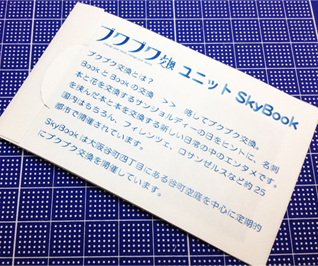 ブクブク交換 ユニット SkyBook
ブクブク交換とは？
BookとBookの交換 >> 略してブクブク交換。
本と花を交換するサンジョルディーの日をヒントに、名刺
を挟んだ本と本を交換する新しい日常の中のエンタメです。
国内はもちろん、フィレンツェ、ロサンゼルスなど約25
都市で開催されています。
SkyBookは大阪谷町四丁目にある谷町空庭を中心に定期的
にブクブク交換を開催しています。